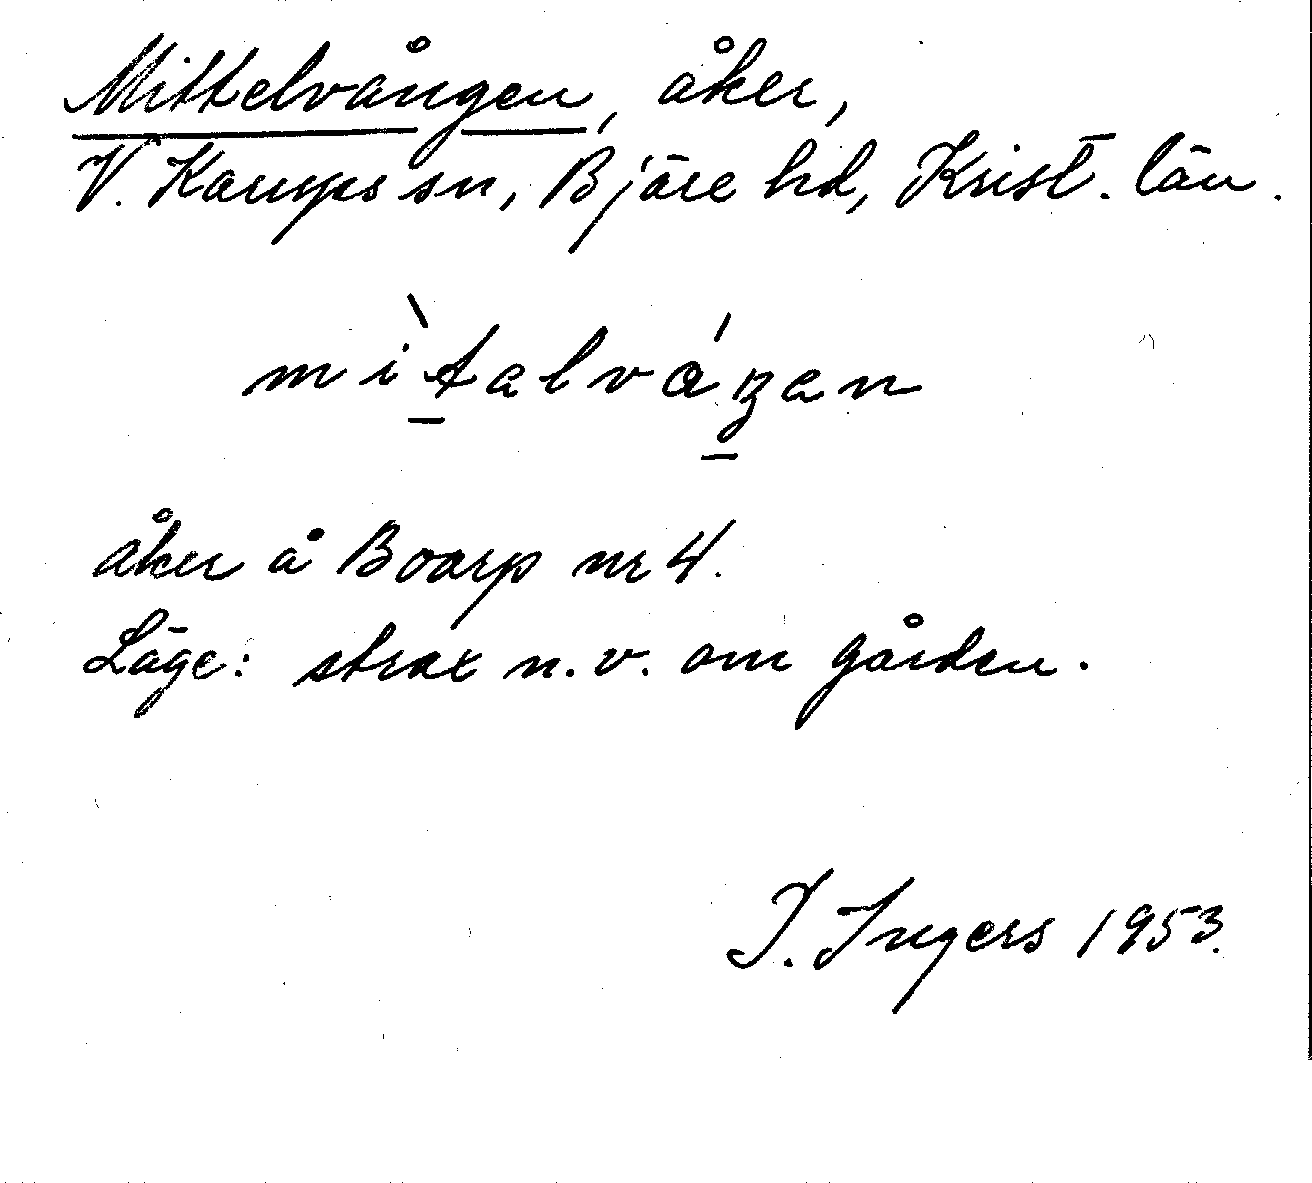 Mittelvången, åker,
V. Karups sn, Bjäre hd, Krist. län.
mìtalváŋan
åker å Boarp nr 4.
Läge: strax n.v. om gården.
I. Ingers 1953.